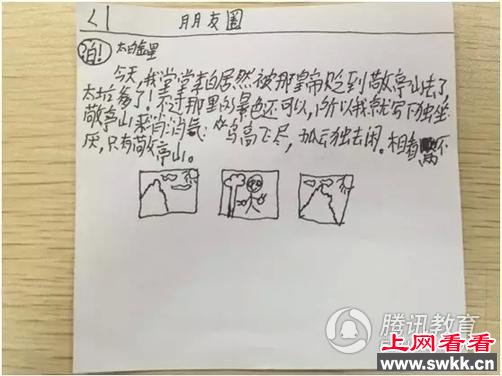 朋友圈
白! 太白金星
今天,我堂堂李白居然被那皇帝贬到敬亭山去了,
太坑爹了!不过那里的景色还可以,所以我就写下独坐
敬亭山来消消气:众鸟高飞尽,孤云独去闲。相看两不
厌,只有敬亭山。
腾讯教育
上网看看
www.swkk.cn